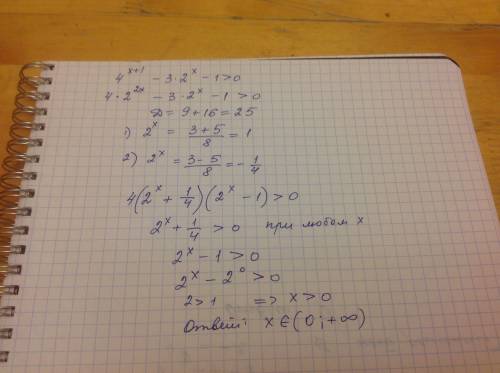 4^{x+1} − 3·2^x − 1 > 0
4·2^{2x} − 3·2^x − 1 > 0
D = 9 + 16 = 25
1) 2^x = \frac{3+5}{8} = 1
2) 2^x = \frac{3−5}{8} = −\frac{1}{4}
4(2^x + \frac{1}{4})(2^x − 1) > 0
2^x + \frac{1}{4} > 0 при любом x
2^x − 1 > 0
2^x − 2^0 > 0
2 > 1 => x > 0
Ответ: x ∈ (0; +∞)